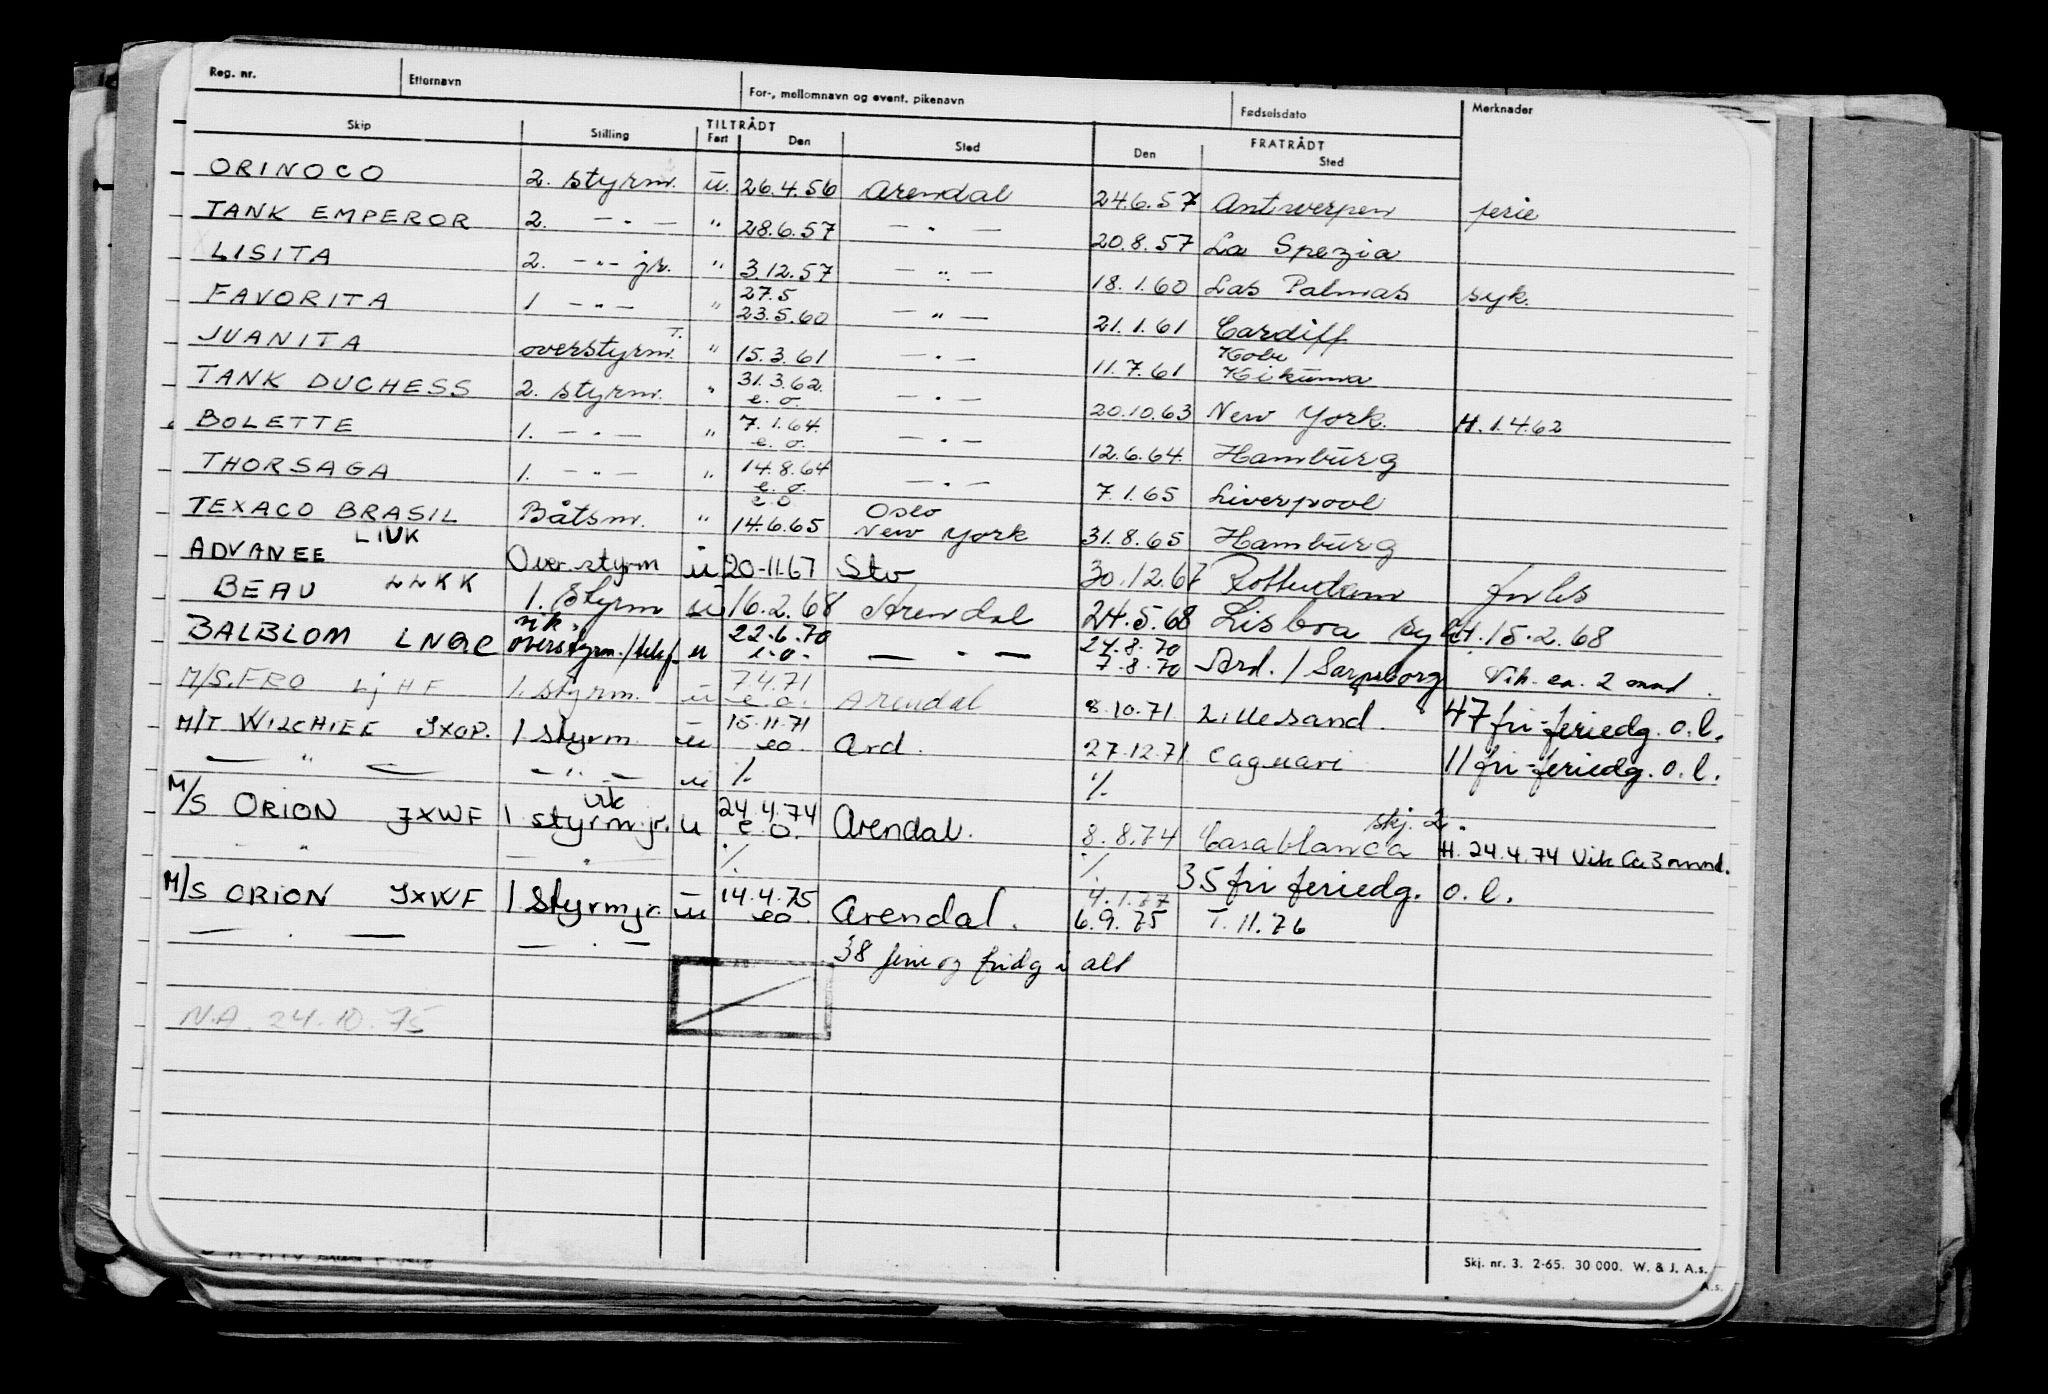 Reg. nr. Etternavn For-, mellomnavn og event. pikenavn Fødselsdato Merknader
Skip Stilling TILTRÅDT Fart Den Sted FRATRÅDT Den Sted
ORINOCO 2. styrm. u. 26.4.56 Arendal 24.6.57 Antwerpen ferie
TANK EMPEROR 2. — " — " 28.6.57 — " — 20.8.57 La Spezia
LISITA 2. — " — jr. " 3.12.57 — " — 18.1.60 Las Palmas syk.
FAVORITA 1 — " — " 27.5 23.5.60 — " — 21.1.61 Cardiff
JUANITA overstyrm. T. " 15.3.61 — " — 11.7.61 Kobe
TANK DUCHESS 2. styrm. " 31.3.62. e.o. — " — 20.10.63 New York. H. 1.4.62
BOLETTE 1. — " — " 7.1.64. e.o. — " — 12.6.64. Hamburg
THORSAGA 1. — " — " 14.8.64 e.o. — " — 7.1.65 Liverpool
TEXACO BRASIL Båtsm. " e.o 14.6.65 Oslo New York 31.8.65 Hamburg
ADVANEE LIVK Overstyrm u 20-11.67 Stv 30.12.67 Rotterdam
BEAU LLKK 1. Styrm u 16.2.68 Arendal 24.5.68 Lisboa syk H. 15.2.68
BALBLOM vik. overstyrm./telef. u 22.6.70 e.o. — " — 27.8.70 7.8.70 Ard. / Sarpsborg Vik. ca. 2 mnd.
M/S. FRO LjHF 1. styrm. u 7.4.71 e.o. Arendal 8.10.71 Lillesand. 47 fri-feriedg. o.l.
M/T WILCHIEF JXOP. 1 styrm. u 15.11.71 eo. Ard. 27.12.71 11 fri-feriedg. o.l.
— " — — " — u % %
M/S ORION JXWF 1 styrm.jr. vik u 24.4.74 e.o. Arendal. 8.8.74 Casablanca skj. 2. H. 24.4.74 Vik Ca 3 mnd.
— " — — " — % % 35 fri feriedg. o.l.
M/S ORION JXWF 1 Styrmjr. u 14.4.75 eo. Arendal. 4.1.77 6.9.75 T. 11.76
— " — — " — 38 ferie og fridg i alt
N.A. 24.10.75
Skj. nr. 3. 2-65. 30 000. W. & J. A.s.
A.s.